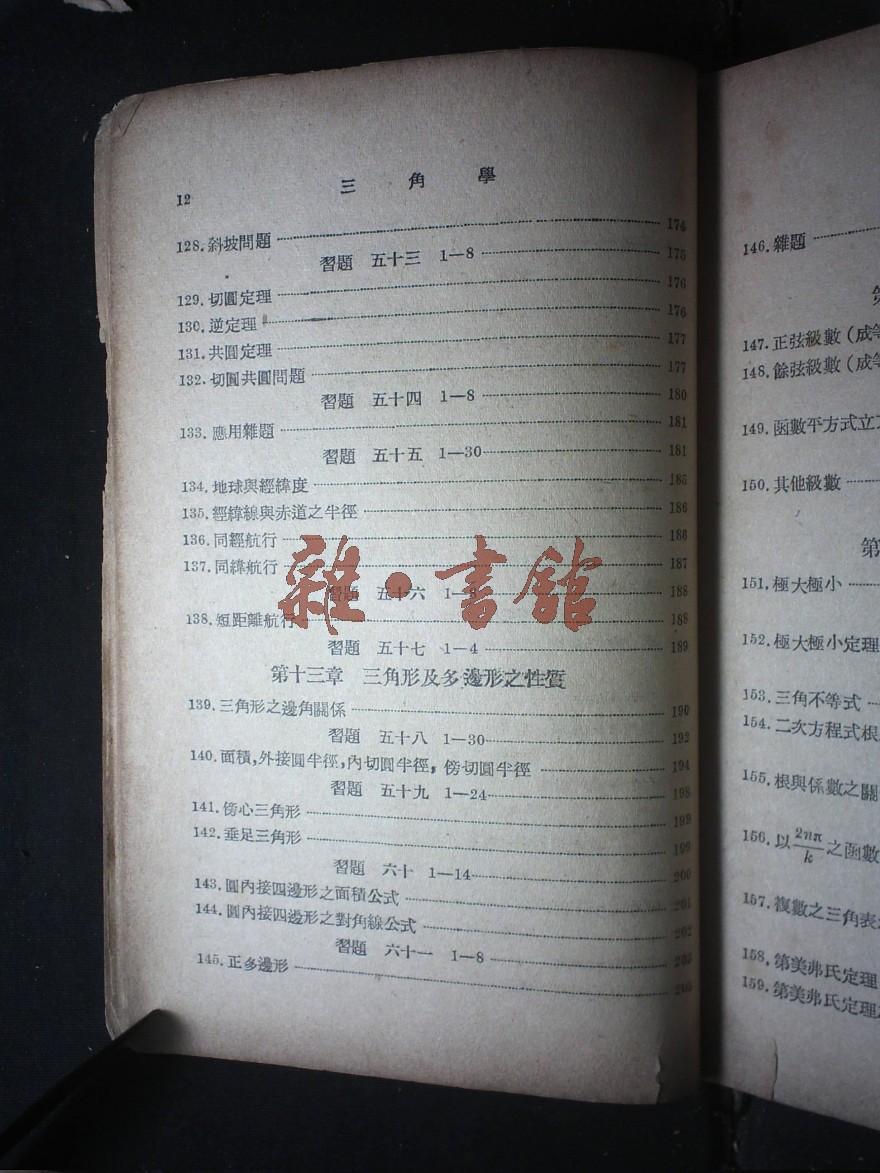 12 三角學
128.斜坡問題 174
習題 五十三 1—8 175
129.切圓定理 176
130.逆定理 176
131.共圓定理 177
132.切圓共圓問題 177
習題 五十四 1—8 180
133.應用雜題 181
習題 五十五 1—30 181
134.地球與經緯度 185
135.經緯線與赤道之半徑 186
136.同經航行 186
137.同緯航行 187
習題 五十六 1—8 188
138.短距離航行 188
習題 五十七 1—4 189
第十三章 三角形及多邊形之性質
139.三角形之邊角關係 190
習題 五十八 1—30 192
140.面積,外接圓半徑,內切圓半徑,傍切圓半徑 194
習題 五十九 1—24 198
141.傍心三角形 199
142.垂足三角形 199
習題 六十 1—14 200
143.圓內接四邊形之面積公式 201
144.圓內接四邊形之對角線公式 202
習題 六十一 1—8 205
145.正多邊形
雜·書館
146.雜題
第
147.正弦級數(成等
148.餘弦級數(成等
149.函數平方式立
150.其他級數
第
151.極大極小
152.極大極小定理
153.三角不等式
154.二次方程式根
155.根與係數之關
156.以2nπ/k之函數
157.複數之三角表
158.第美弗氏定理
159.第美弗氏定理